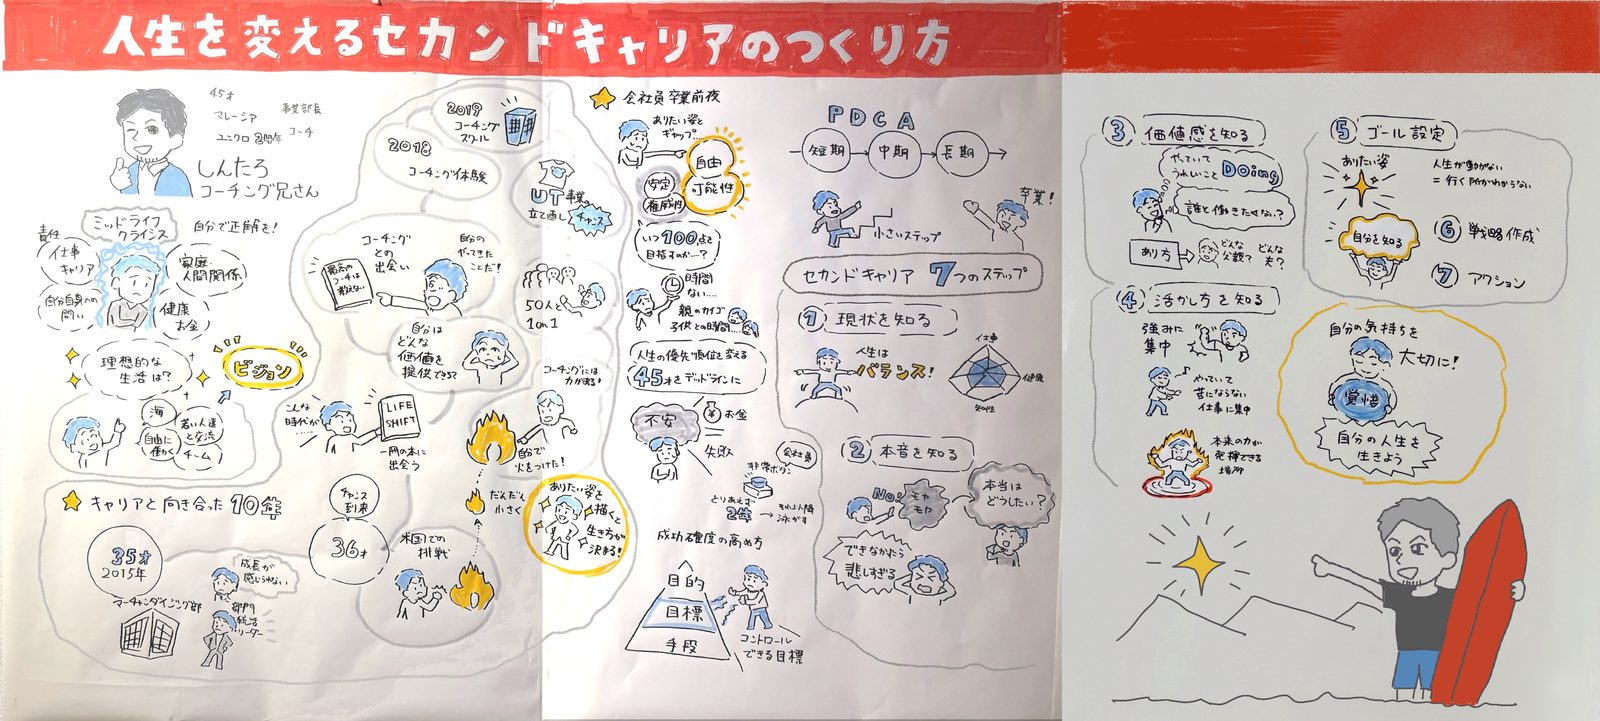 人生を変えるセカンドキャリアのつくり方
45才
マレーシア
事業部長
ユニクロ
コーチ
しんたろ
コーチング兄さん
ミッドライフ
クライシス
自分で正解を!
責任
仕事
キャリア
家庭・
人間関係
自分自身への
問い
健康
お金
理想的な
生活は?
ビジョン
海
自由に
働く
若い人達
と交流
チーム
キャリアと向き合った10年
35才
2015年
マーチャンダイジング部
成長が
感じられない
部門
統括
リーダー
チャンス
到来
36才
米国での
挑戦
だんだん
小さく
自分で
火をつけた!
コーチングには
力がある!
こんな
時代が……
LIFE
SHIFT
一冊の本に
出会う
コーチング
との
出会い
自分の
やってきた
ことだ!
自分は
どんな
価値を
提供できる?
2018
コーチング体験
2019
コーチング
スクール
UT事業
立て直し
チャンス
50人と
1on1
ありたい姿を
描くと
生き方が
決まる!
会社員卒業前夜
ありたい姿と
ギャップ……
自由
可能性
安定
権威性
いつ100点を
目指すのか…?
時間
ない……
親のカイゴ
子供との時間…
人生の優先順位を変える
45才をデッドラインに
不安
お金
失敗
会社員
非常ボタン
とりあえず
2年
それ以降
泳がす
成功確度の高め方
目的
目標
手段
コントロール
できる目標
PDCA
短期
中期
長期
小さいステップ
卒業!
セカンドキャリア 7つのステップ
1 現状を知る
人生は
バランス!
仕事
健康
知性
2 本音を知る
No!
モヤ
モヤ
本当は
どうしたい?
できなかたら
悲しすぎる
3 価値感を知る
やっていて
うれしいこと Doing
誰と働きたくない?
あり方
どんな
父親?
どんな
夫?
4 活かし方を知る
強みに
集中
やっていて
苦にならない
仕事に集中
本来の力が
発揮できる
場所
5 ゴール設定
ありたい姿
人生が動かない
=行く所がわからない
自分を知る
6 戦略作成
7 アクション
自分の気持ちを
大切に!
覚悟
自分の人生を
生きよう